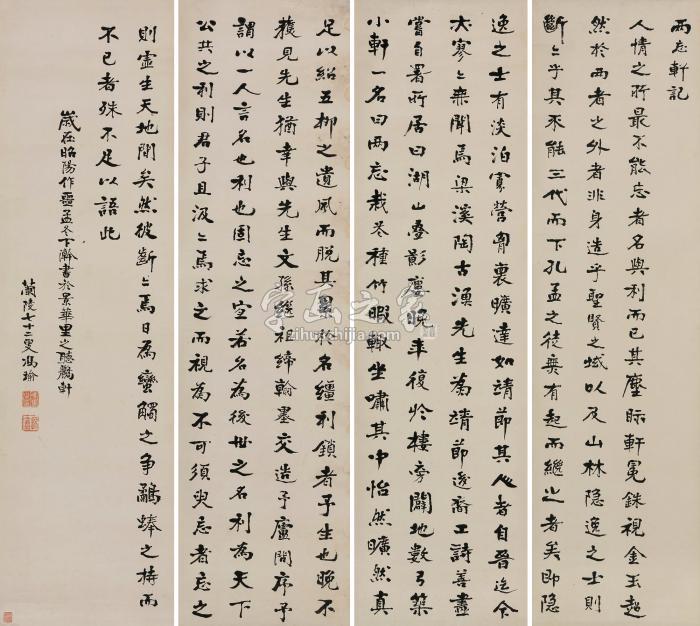 两忘軒記
人情之所最不能忘者名與利而已其塵眎軒冕銖視金玉超
然於两者之外者非身造乎聖賢之域以及山林隐逸之士則
斷斷乎其不能三代而下孔孟之徒無有起而繼之者矣即隐
逸之士有淡泊寡營胷裏曠達如靖節其人者自晉迄今
大寥寥無聞焉梁溪陶古漁先生為靖節後裔工詩善畫
嘗自署所居曰湖山叠影廔晚年復於樓旁闢地數弓築
小軒一名曰两忘栽花種竹暇輒坐嘯其中怡然曠然真
足以紹五柳之遺風而脱其累於名繮利鎖者予生也晚不
獲見先生猶幸與先生文孫繼祖締翰墨交造予廬問序予
謂以一人言名也利也固忘之宜若名為後世之名利為天下
公共之利則君子且汲汲焉求之而視為不可須臾忘者忘之
則虚生天地間矣然彼斷斷焉日為蠻觸之争鷸蚌之持而
不已者殊不足以語此
歲在昭陽作噩孟冬下澣書於景華里之聽鸝軒
蘭陵七十二叟馮瑜
字画之家
zihuazhijia.com